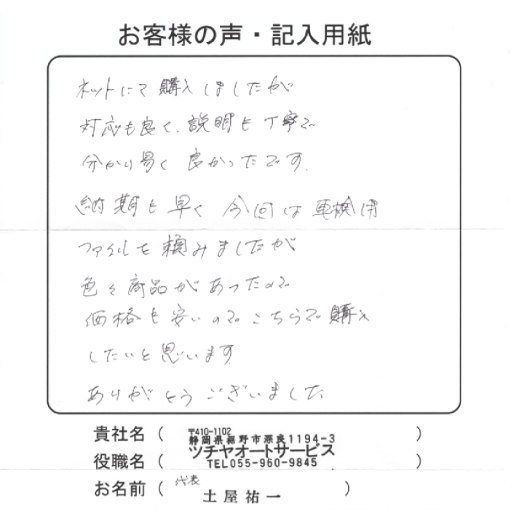 お客様の声・記入用紙
ネットにて購入しましたが
対応も良く、説明も丁寧で
分かり易く良かったです。
納期も早く今回は車検用
ファイルを頼みましたが
色々商品があったので
価格も安いのでこちらで購入
したいと思います
ありがとうございました
貴社名（ 〒410-1102
静岡県裾野市深良1194-3 ）
役職名（ ツチヤオートサービス
TEL055-960-9845 ）
お名前（ 代表 土屋祐一 ）